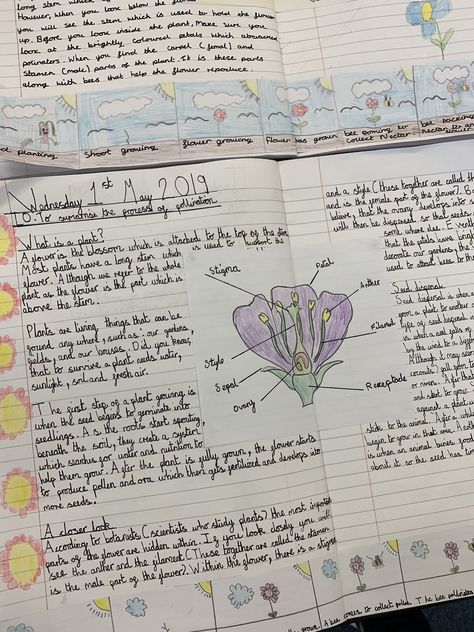 long stem which
However, When you look below the flower
you will see the stem which is used to hold the flower
up. Before you look inside the plant, Make sure you
look at the brightly coloured petals which
polinators. When you find the carpel (female) and
Stamen (male) parts of the plant. It is these parts
along with bees that help the flower reproduce.
planting
Shoot growing
flower growing
Flower has grown
bee coming to
collect Nectar
bee
nectar to
Wednesday 1st May 2019
LO: To summarise the process of pollination.
What is a plant?
A flower is the blossom which is attached to the top of the stem.
Most plants have a long stem which is used to support the
flower. Although we refer to the whole
plant as the flower is the part which is
above the stem.
Plants are living things that can be
found any where, such as: our gardens,
fields, and our houses. Did you know,
that to survive a plant needs water,
sunlight, soil and fresh air.
The first step of a plant growing is
when the seed begins to germinate into
seedlings. As the roots start sprouting,
beneath the soil, they create a system
which searches for water and nutrition to
help them grow. After the plant is fully grown, the flower starts
to produce pollen and ova which then gets fertilized and develops into
more seeds.
A closer look
According to botanists (scientists who study plants) the most important
parts of the flower are hidden within. If you look closely you will
see the anther and the filament (These together are called the stamen
is the male part of the flower). Within the flower, there is a stigma
Stigma
Petal
Anther
Filament
Style
Sepal
Ovary
Receptacle
and a style (these together are called the
and is the female part of the flower).
believe, that the ovary develops into
will then be dispersed so that
some where else.
that the petals have bright
decorate our gardens, the
used to attract bees to the
Seed dispersal
Seed dispersal is when a
from a plant to another
type of seed dispersal
is when a seed falls
the wind to a
Although it may seem
coconuts) fall from
or river. After that
and start to
against a plant
sticks to the animal. After a
begin to grow in that area.
is when an animal
about it so the seed has
grown. A bee comes to collect pollen. The bee pollinates